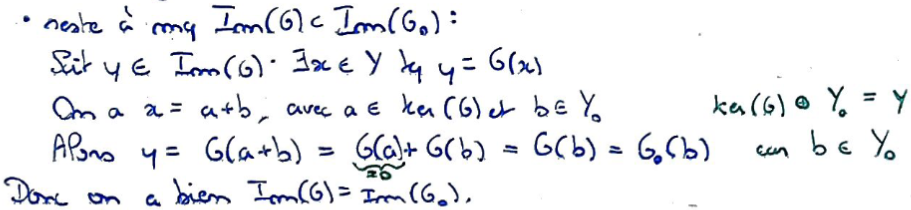 • reste à mq Im(G) ⊂ Im(G₀) :
Soit y ∈ Im(G). ∃x ∈ Y tq y = G(x)
On a x = a+b, avec a ∈ ker(G) et b ∈ Y₀ ker(G) ⊕ Y₀ = Y
Alors y = G(a+b) = G(a) + G(b) = G(b) = G₀(b) car b ∈ Y₀
=0
Donc on a bien Im(G) = Im(G₀).